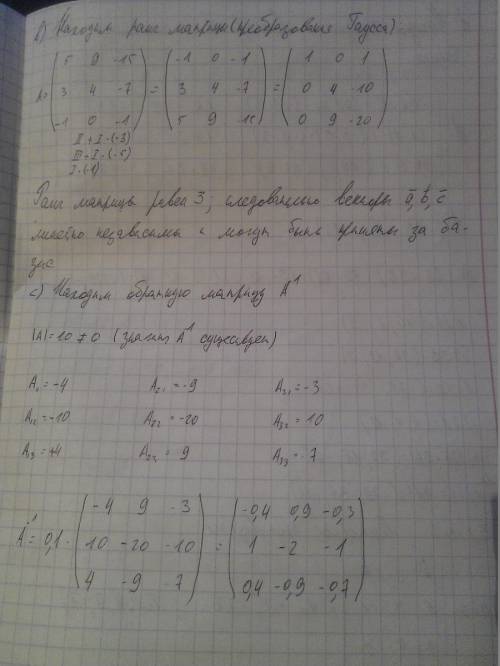 b) Находим ранг матрицы (преобразование Гаусса)
A= ( 5 9 -15 ) = ( -1 0 -1 ) = ( 1 0 1 )
( 3 4 -7 ) ( 3 4 -7 ) ( 0 4 -10 )
( -1 0 -1 ) ( 5 9 -15 ) ( 0 9 -20 )
II + I·(-3)
III + I·(-5)
I·(-1)
Ранг матрицы равен 3, следовательно векторы a, b, c
линейно независимы и могут быть приняты за ба-
зис
c) Находим обратную матрицу A⁻¹
|A|=10 ≠ 0 (значит A⁻¹ существует)
A₁ = -4 A₂₁ = -9 A₃₁ = -3
A₁₂ = -10 A₂₂ = -20 A₃₂ = 10
A₁₃ = +4 A₂₃ = 9 A₃₃ = 7
A⁻¹ = 0,1 · ( -4 9 -3 ) = ( -0,4 0,9 -0,3 )
( 10 -20 -10 ) ( 1 -2 -1 )
( 4 -9 -7 ) ( 0,4 -0,9 -0,7 )